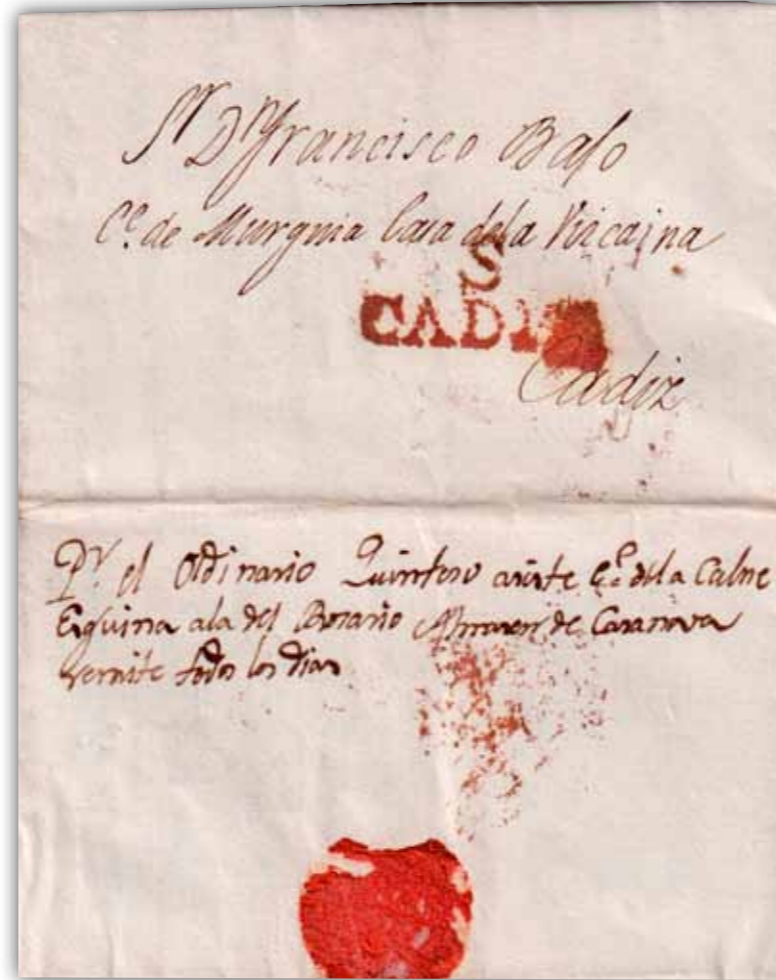 Sr Dn Francisco Baso
Ce. de Murguia Casa dela Vizcaina
S
CADIZ
Cadiz
Pr el Ordinario Quintero asiste Ce. dela Calne
Esquina ala del Rosario Almasen de Casanova
remite todos los Dias